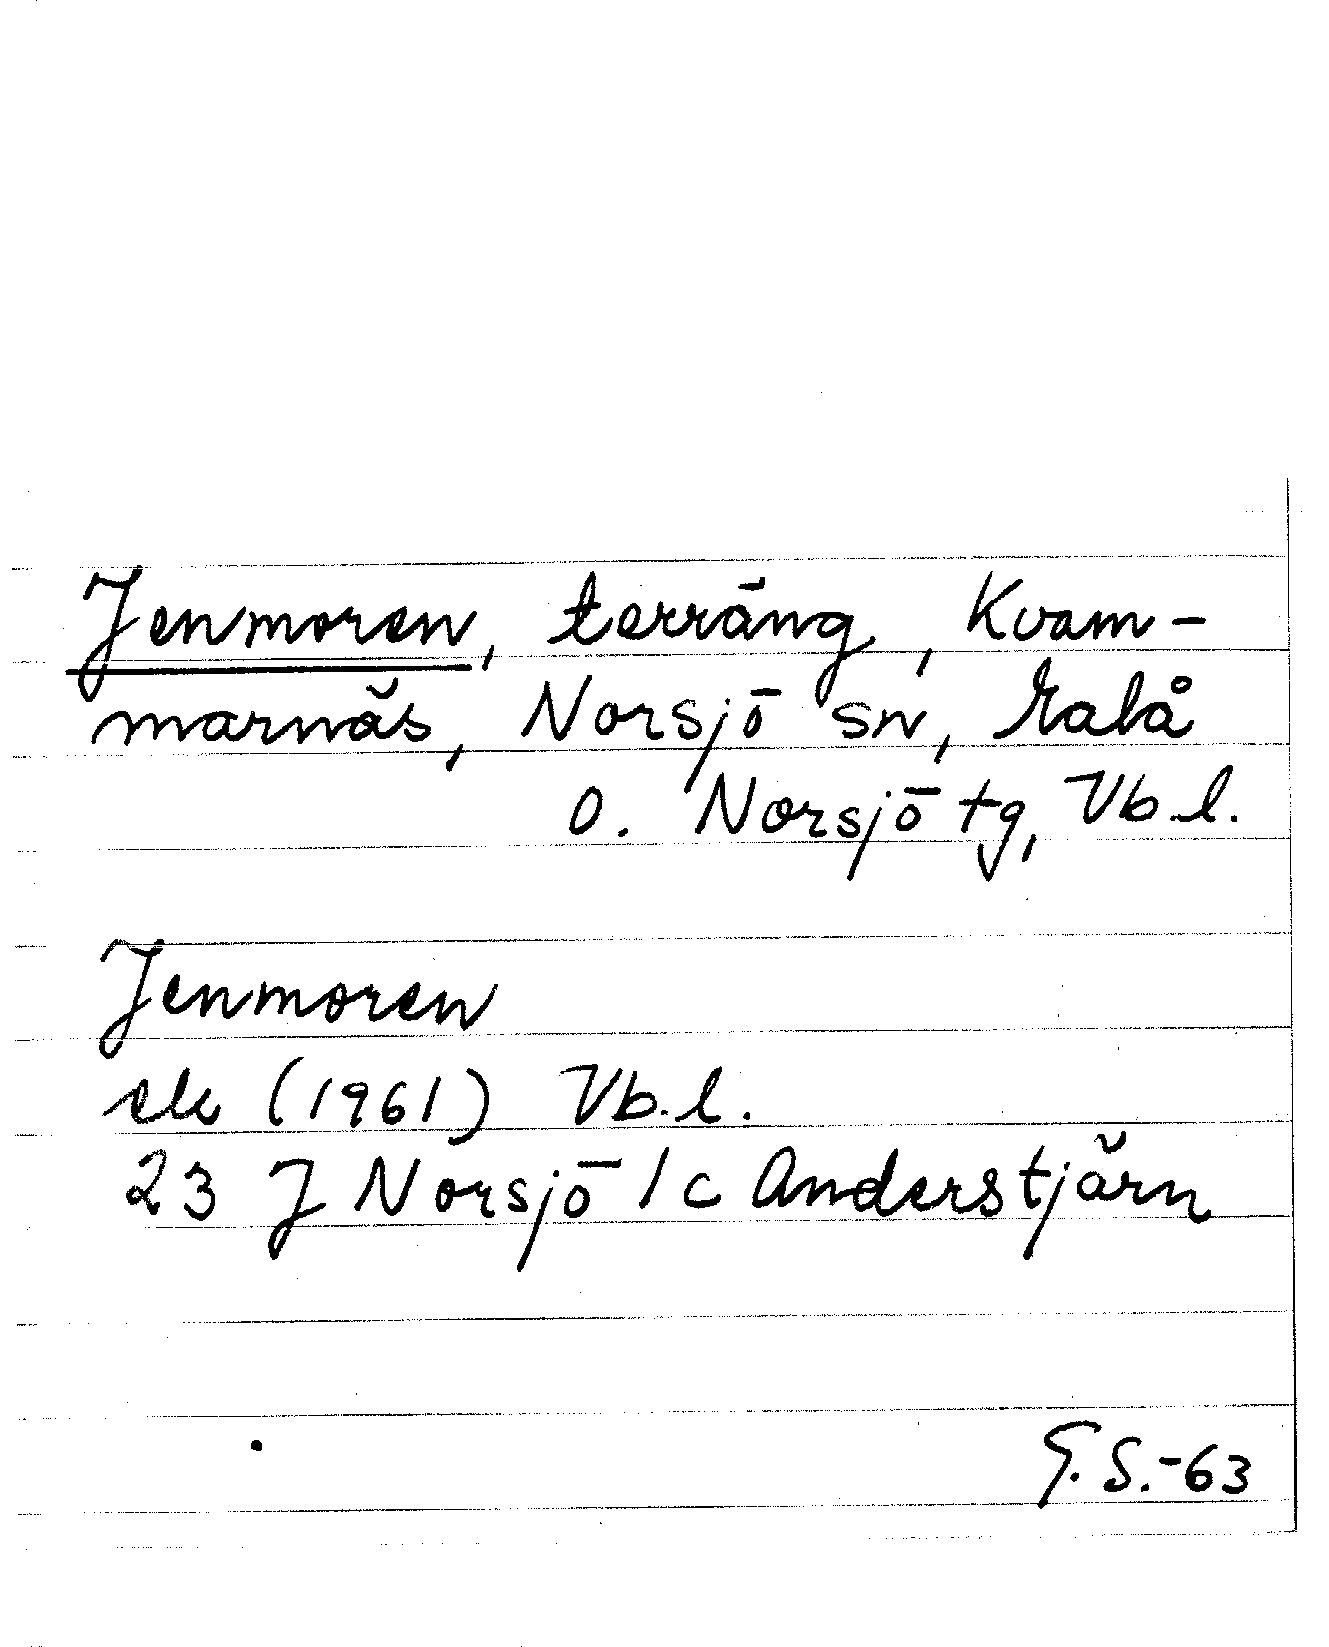 Jenmoren, terräng, Kvam-
marnäs, Norsjö sn, Malå
o. Norsjö tg, Vb.l.
Jenmoren
ek (1961) Vb.l.
23 J Norsjö 1c Anderstjärn
G.S.-63